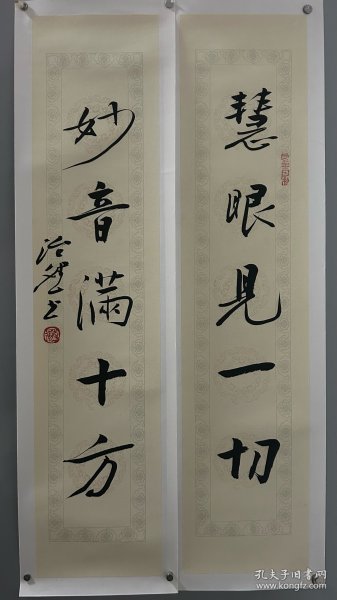 慧眼見一切
妙音滿十方
孔夫子旧书网
www.kongfz.com